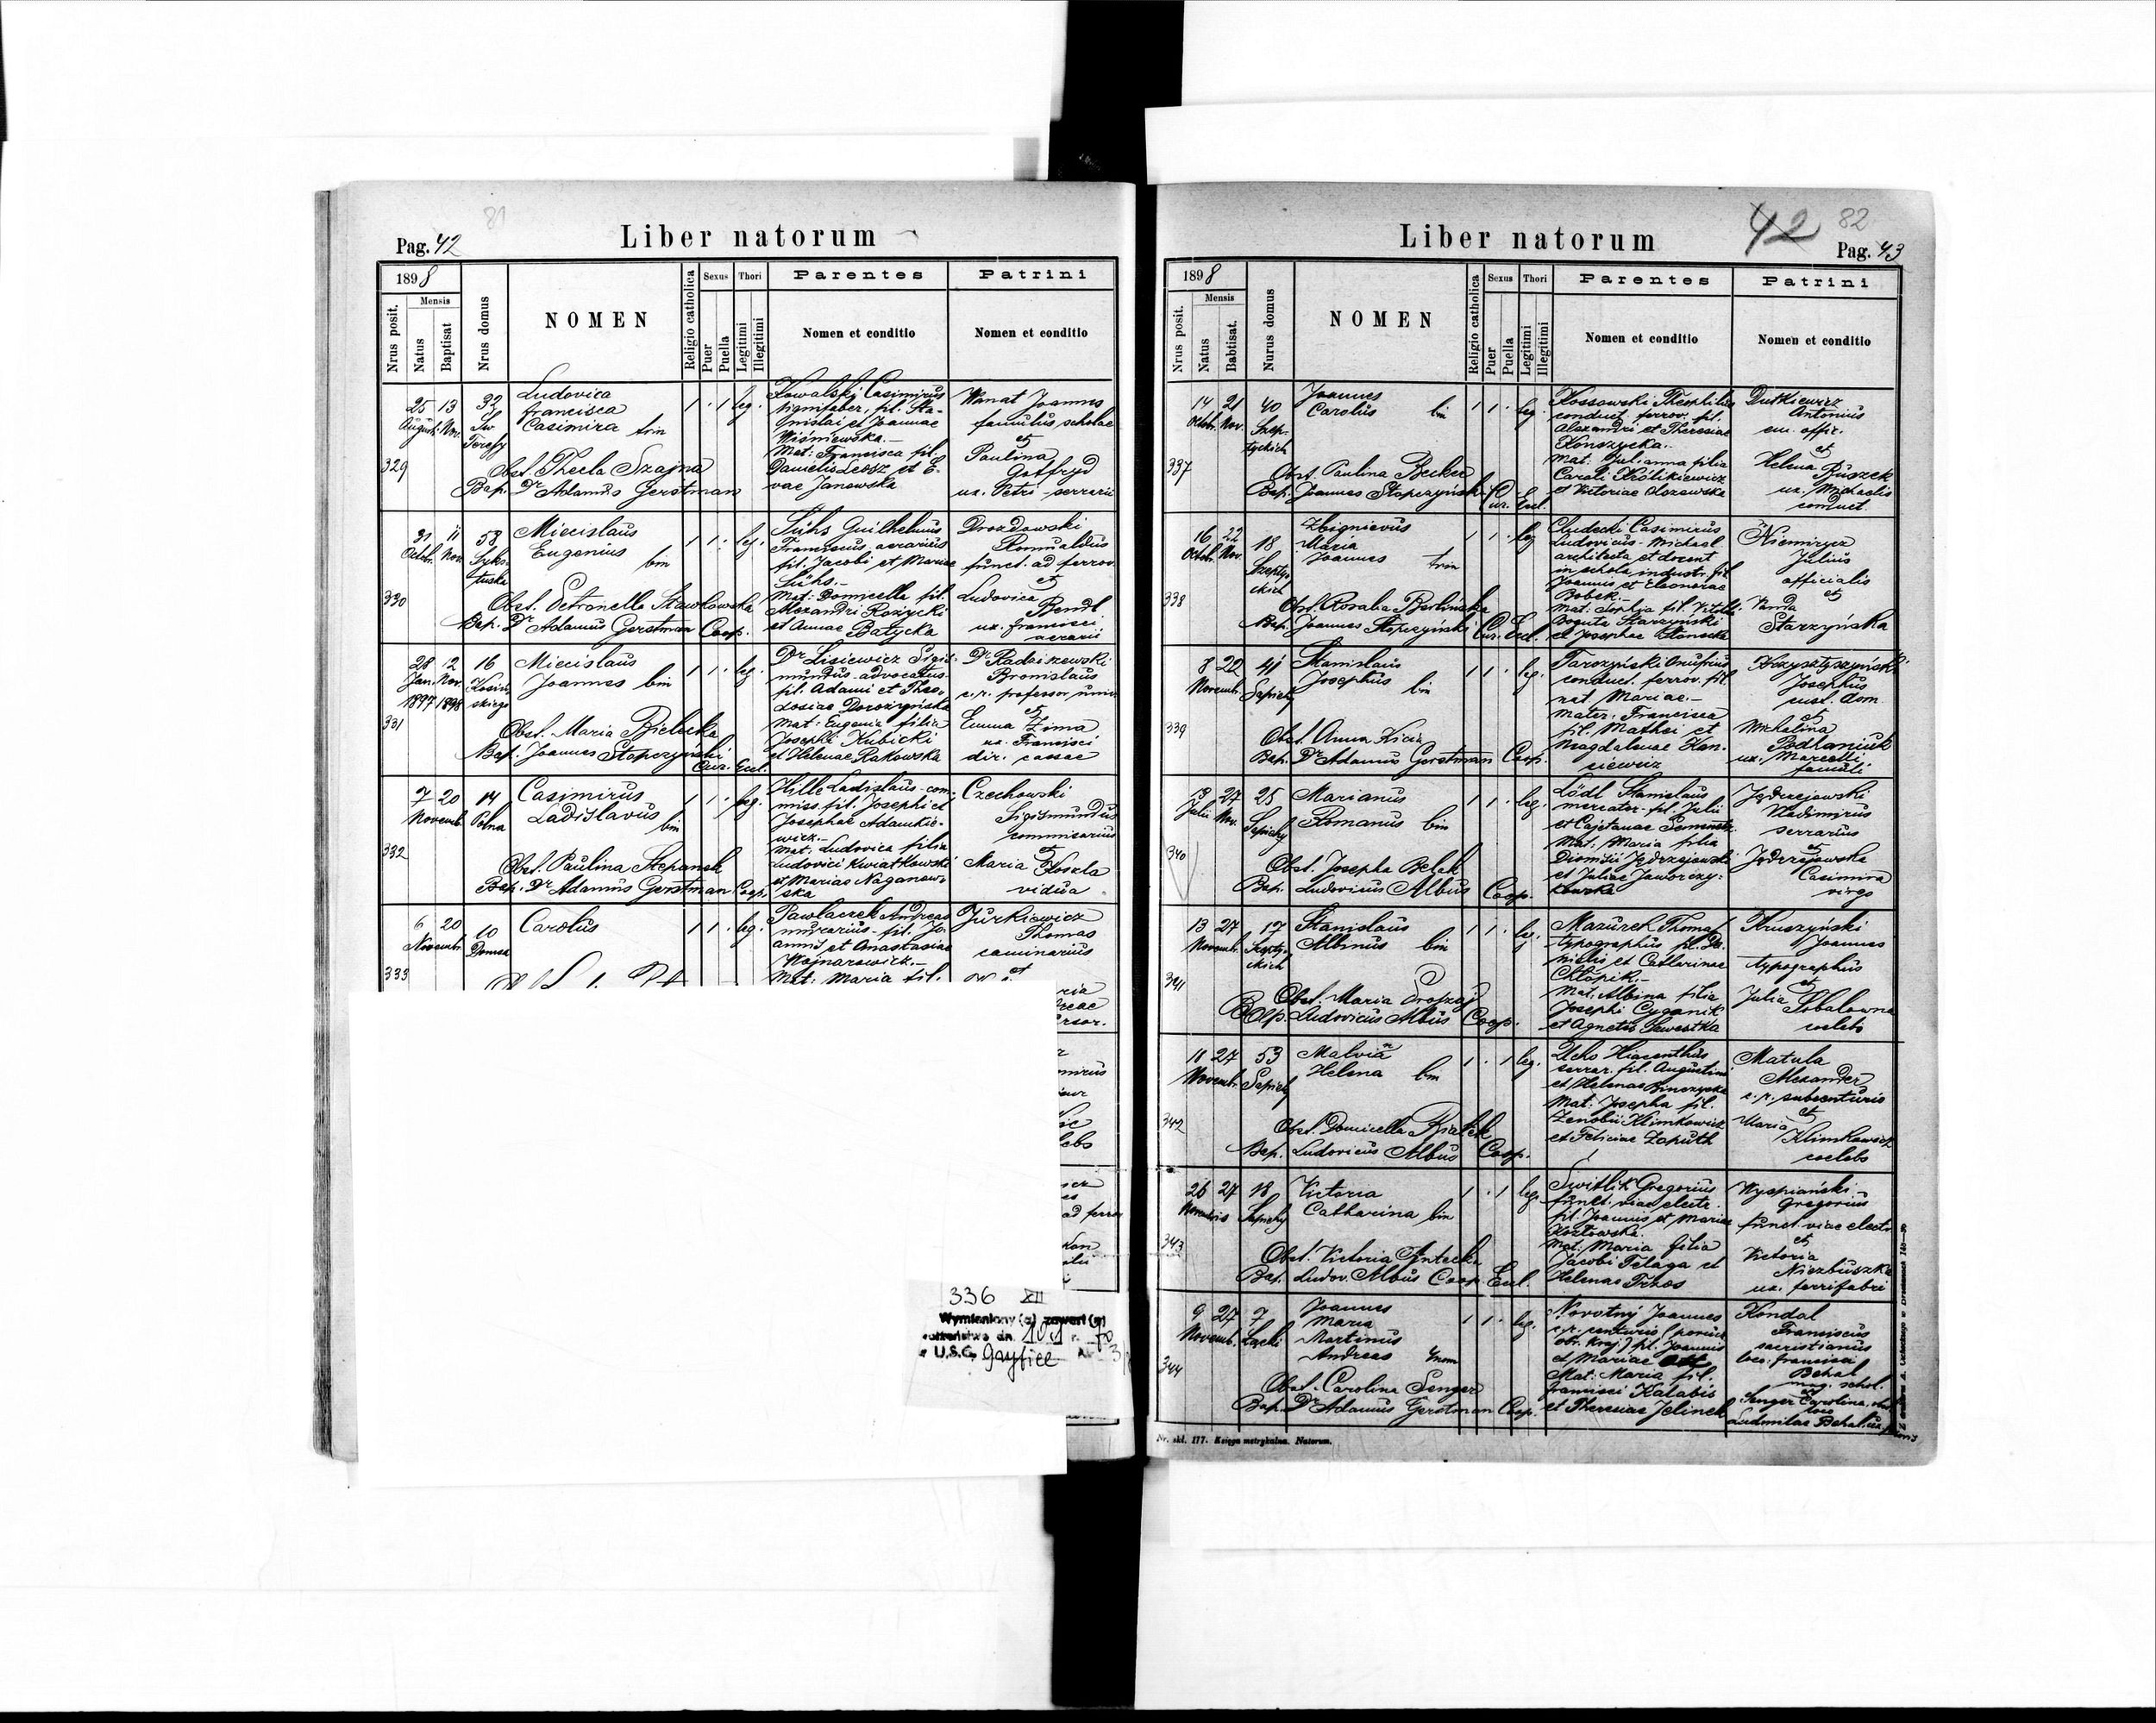 81
Pag. 42
Liber natorum
1898
Nrus posit.
Mensis
Natus
Baptisat
Nrus domus
NOMEN
Religio catholica
Sexus
Puer
Puella
Thori
Legitimi
Illegitimi
Parentes
Nomen et conditio
Patrini
Nomen et conditio
329
25 13
Augusti Nov.
32
Sw
Teresy
Ludovica
Francisca
Casimira trin
Obst. Thecla Szajna
Bap. Dr Adamus Gerstman
1 . 1 leg.
Kowalski Casimirus
lignifaber, fil. Sta-
nislai et Joannae
Wiśniewska.-
Mat: Francisca fil.
Danielis Leosz et E-
vae Janowska
Wanat Joannes
famulus scholae
et
Paulina
Gotfryd
ux. Petri serrarii
330
31 11
Octob. Nov.
58
Syks-
tuska
Miecislaus
Eugenius
bin
Obst. Petronella Stawkowska
Bap. Dr Adamus Gerstman Coop.
1 1 . leg.
Sühs Guilhelmus
Franciscus aerarius
fil. Jacobi et Mariae
Sühs.-
Mat: Domicella fil.
Alexandri Rożycki
et Annae Batycka
Drozdowski
Romualdus
funct. ad ferrov.
et
Ludovica
Bendl
ux. Francisci
aerarii
331
28 12
Jan. Nov.
1897 1898
16
Kosiń-
skiego
Miecislaus
Joannes bin
Obst. Maria Bielecka
Bap. Joannes Stopczyński
Cur. Eccl.
1 1 . leg.
Dr Lisiewicz Sigis-
mundus advocatus
fil. Adami et Theo-
dosiae Dorożyńska
Mat: Eugenia filia
Josephi Kubicki
et Helenae Rakowska
Dr Radziszewski
Bronislaus
c.r. professor univ.
et
Emma Zima
ux. Francisci
dir. cassae
332
7 20
Novemb.
14
Polna
Casimirus
Ladislavus
bin
Obst. Paulina Stepanek
Bap. Dr Adamus Gerstman Coop.
1 1 . leg.
Hille Ladislaus com-
miss. fil. Josephi et
Josephae Adamkie-
wicz.-
Mat: Ludovica filia
Ludovici Kwiatkowski
et Mariae Naganow-
ska
Czechowski
Sigismundus
commisarius
et
Maria Koszla
vidua
333
6 20
Novemb.
10
Carolus
1 1 . leg.
Pawlaczek Andreas
murarius - fil. Jo-
annis et Anastasiae
Wojnarowicz.-
Mat: Maria fil.
Jurkiewicz
Thomas
caminarius
et
ad ferrov
336 XII
Wymieniony (a) zawarł (a)
U.S.C. Gryfice
42 82
Liber natorum
Pag. 43
1898
Nrus posit.
Mensis
Natus
Babtisat.
Nurus domus
NOMEN
Religio catholica
Sexus
Puer
Puella
Thori
Legitimi
Illegitimi
Parentes
Nomen et conditio
Patrini
Nomen et conditio
337
14 21
Octob. Nov.
40
Szep-
tyckich
Joannes
Carolus bin
Obst. Paulina Becker
Bap. Joannes Stopczyński Cur. Eccl.
1 1 . leg.
Kossowski Theophilus
conduct. ferrov. fil.
Alexandri et Theresiae
Konszycka.-
Mat: Julianna filia
Caroli Królikiewicz
et Victoriae Lozowska
Dutkiewicz
Antonius
em. offic.
et
Helena Ruszek
ux. Michaelis
conduct.
338
16 22
Octob. Nov.
18
Szepty-
ckich
Zbignievus
Maria
Joannes trin
Obst. Rosalia Berlińska
Bap. Joannes Stopczyński Cur. Eccl.
1 1 . leg.
Chudecki Casimirus
Ludovicus-Michael
architecta et docent
in schola industr. fil
Joannis et Eleonorae
Bobek.-
Mat: Sophia fil. Vitoldi
Starzyński
et Josephae
Niemirycz
Julius
officialis
et
Vanda
Starzyńska
339
8 22
Novemb.
41
Sapiehy
Stanislaus
Josephus bin
Obst. Anna Kicia
Bap. Dr Adamus Gerstman Coop.
1 1 . leg.
Tarczyński Onufrius
conduct. ferrov. fil.
nat Mariae.-
Mater: Francisca
fil. Mathei et
Magdalenae Han-
ciewicz
Josephus
cust. dom.
et
Michalina
Podhaniuk
ux. Marcelli
famuli
340
13 27
Julii Nov.
25
Sapiehy
Marianus
Romanus bin
Obst. Josepha Belak
Bap. Ludovicus Albus Coop.
1 1 . leg.
Lödl Stanislaus
mercator - fil. Julii
et Cajetanae
Mat: Maria filia
Dionisii Jędrzejowski
et Juliae Jaworczy-
kowska
Jędrzejowski
Vladimirus
serrarius
et
Jędrzejowska
Casimira
virgo
341
13 27
Novemb.
17
Szepty-
ckich
Stanislaus
Albinus bin
Obst. Maria Drozaj
Bap. Ludovicus Albus Coop.
1 1 . leg.
Mazurek Thomas
typographus fil. Da-
nielis et Catharinae
Chlopik.-
Mat: Albina filia
Josephi Cyganik
et Agnetis Szwestka
Kruszyński
Joannes
typographus
et
Julia Sobalowna
coelebs
342
11 27
Novemb.
53
Sapiehy
Malvina
Helena bin
Obst. Domicella Bialik
Bap. Ludovicus Albus Coop.
1 . 1 leg.
Hiacenthus
serrar. fil. Augustini
et Helenae Binczycka
Mat: Josepha fil.
Zenobii Klimkowicz
et Feliciae Zaputh
Matula
Alexander
c.r. subcenturio
et
Maria
Klimkowicz
coelebs
343
26 27
Novembris
18
Sapiehy
Victoria
Catharina bin
Obst. Victoria Antecka
Bap. Ludov. Albus Coop. Eccl.
1 . 1 leg.
Switlik Gregorius
funkt. viae electr.
fil. Joannis et Mariae
Kozłowska.
Mat: Maria filia
Jacobi Telaga et
Helenae Trzos
Wyspiański
Gregorius
funct. viae electr.
et
Victoria
Niezbuszka
ux. ferrifabri
344
9 27
Novemb.
7
Lącki
Joannes
Maria
Martinus
Andreas 4nom
Obst. Carolina Senger
Bap. Dr Adamus Gerstman Coop.
1 1 . leg.
Novotný Joannes
c.r. centurio (poruczn.
obr. kraj.) fil. Joannis
et Mariae
Mat: Maria fil.
Francisci Kalabis
et Theresiae Jelinek
Kondal
Franciscus
sacristianus
loco Francisci
Behal
mag. schol.
et
Senger Carolina, obst.
loco
Ludmilae Behal, ux.
Nr. skł. 177. Księga metrykalna. Natorum.